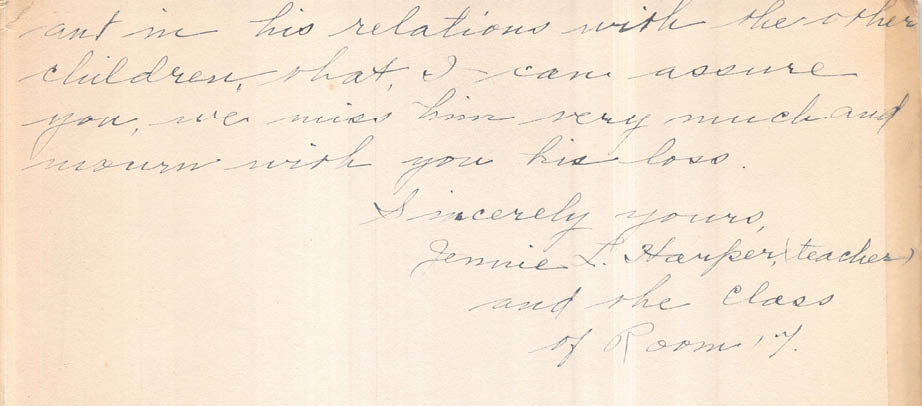 ant in his relations with the other
children, that, I can assure
you, we miss him very much and
mourn with you his loss.
Sincerely yours,
Jennie L. Harper, (teacher)
and the Class
of Room 17.